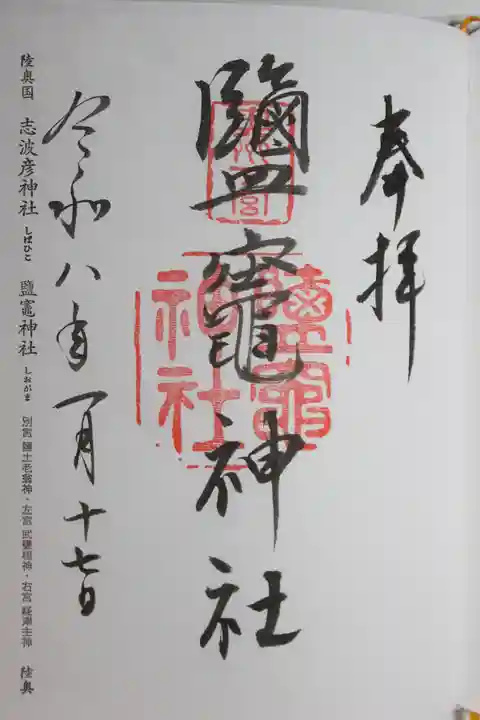 奉拝
鹽竈神社
鹽竈
神社
令和八年一月十七日
陸奥国 志波彦神社 しばひこ 鹽竈神社 しおがま 別宮 鹽土老翁神・左宮 武甕槌神・右宮 経津主神 陸奥